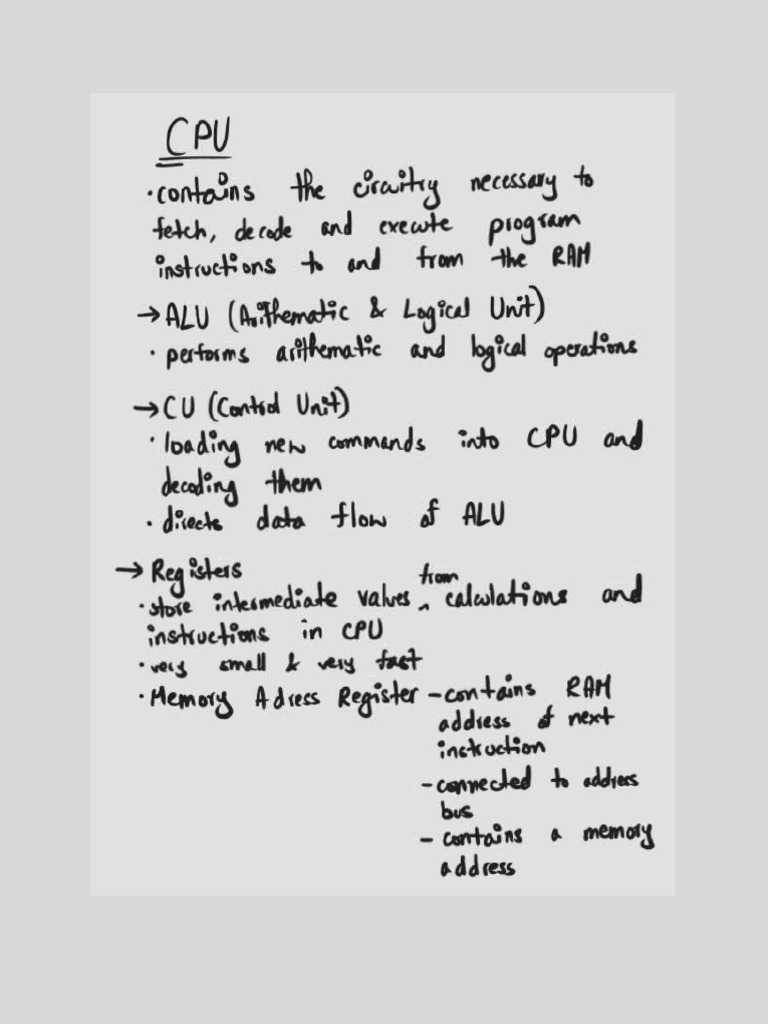 CPU
·contains the circuitry necessary to
fetch, decode and execute program
instructions to and from the RAM
→ALU (Arithematic & Logical Unit)
· performs arithematic and logical operations
→CU (Control Unit)
·loading new commands into CPU and
decoding them
· directs data flow of ALU
→ Registers
·store intermediate values from calculations and
instructions in CPU
· very small & very fast
· Memory Adress Register -contains RAM
address of next
instruction
-connected to address
bus
- contains a memory
address